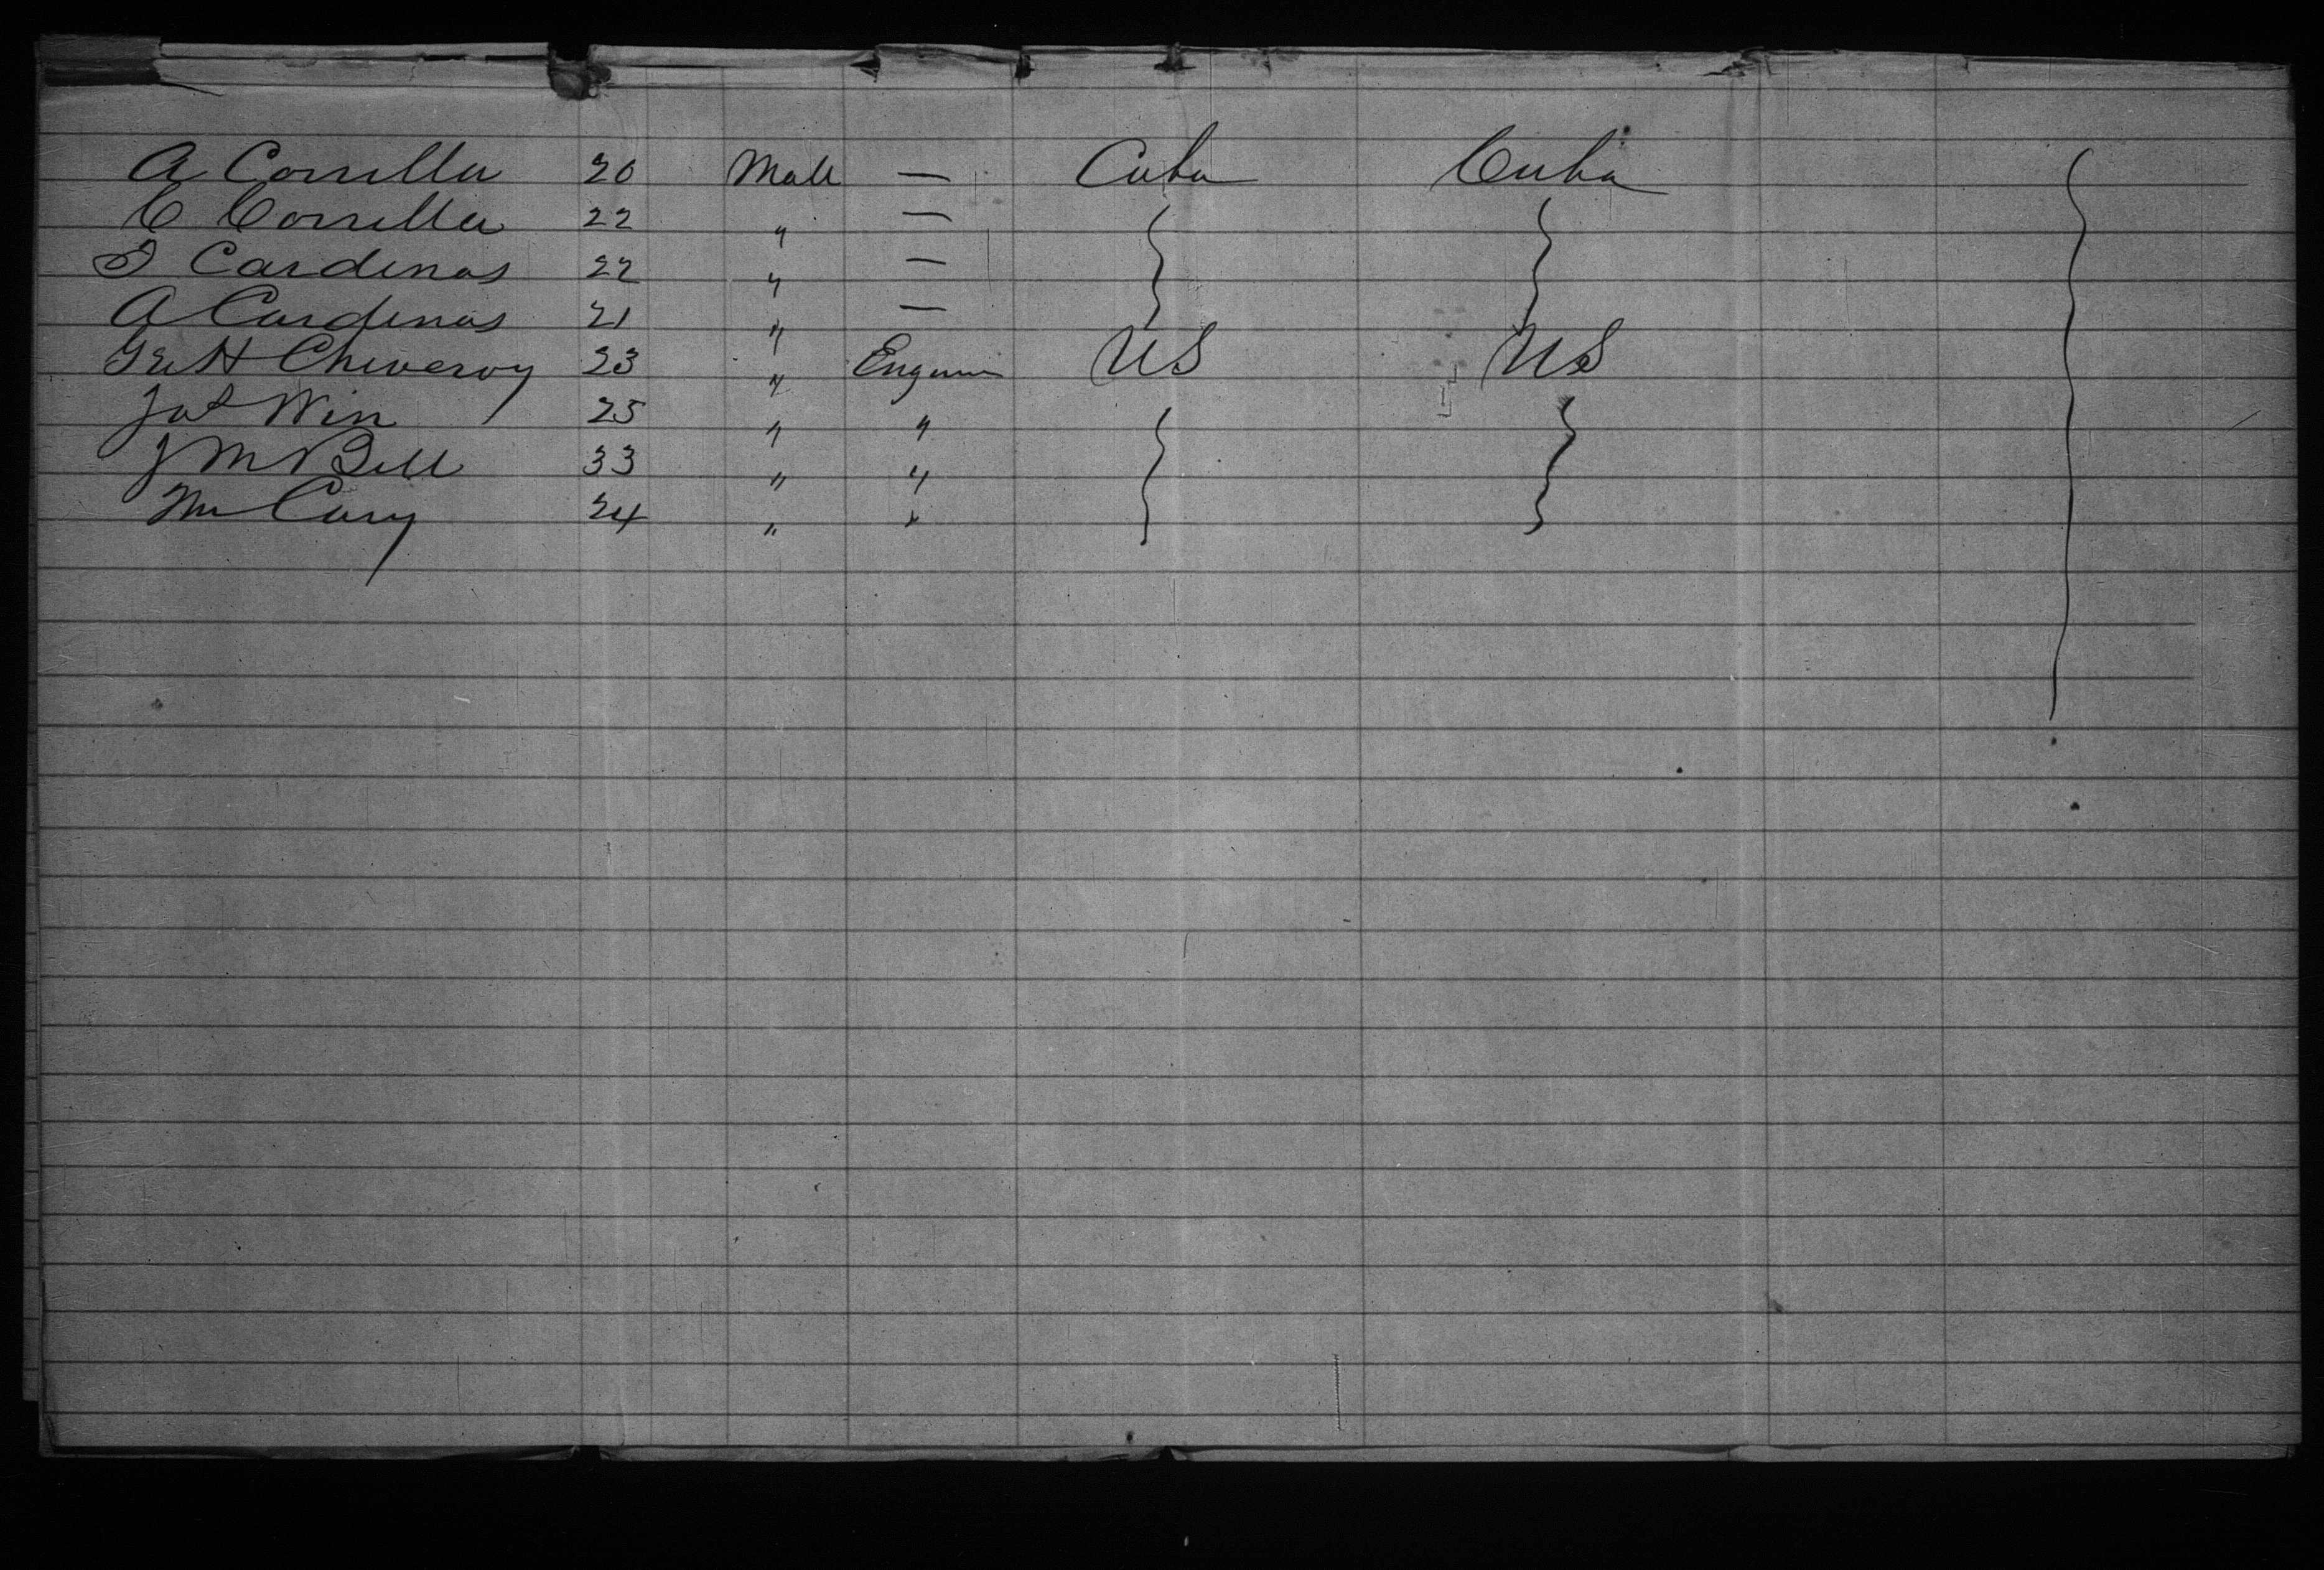 A Corrilla 20 Male — Cuba Cuba
C Corrilla 22 " —
J Cardenas 22 " —
A Cardenas 21 " —
H Cheveroy 23 " Engineer US US
Jas Win 25 " "
J M Bell 33 " "
Wm Cary 24 " "